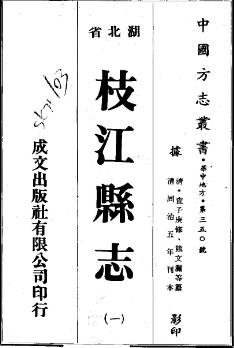 中國方志叢書・華中地方・第三五〇號
據 清・查子庚修、熊文瀾等纂
清同治五年刊本 影印
湖北省
枝江縣志
(一)
成文出版社有限公司印行